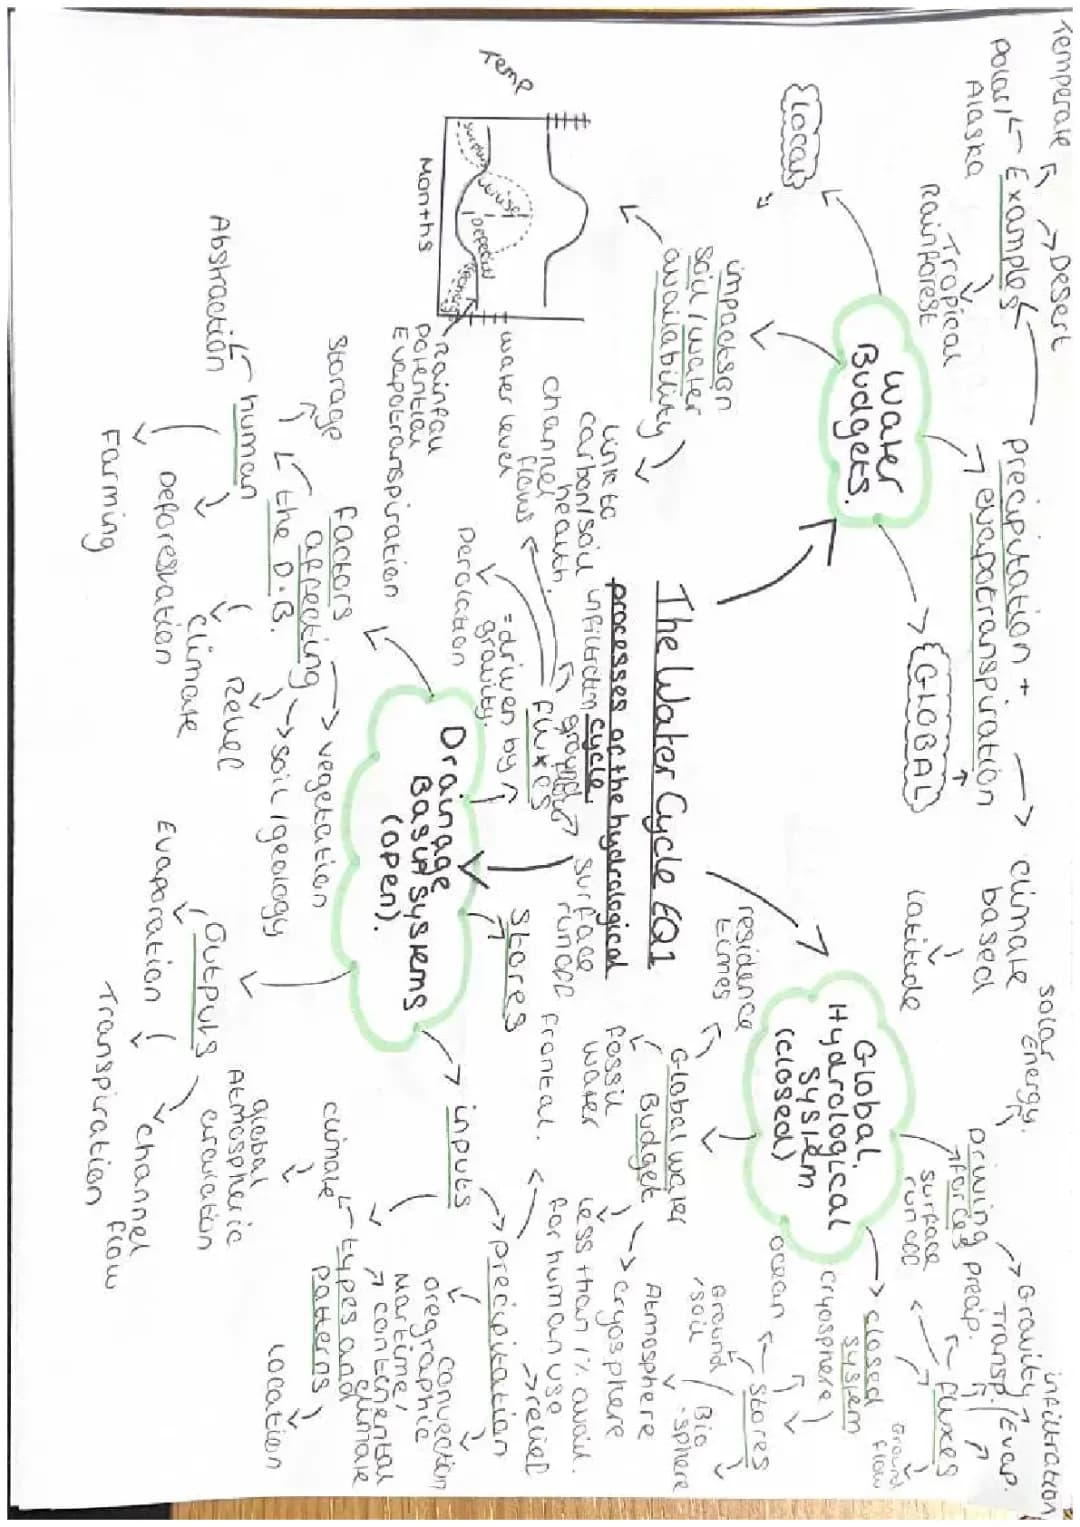 The Water Cycle EQ1
processes of the hydrological
cycle.
Water
Budgets.
Local
GLOBAL
precipitation +
evapotranspiration
Examples
Temperate
Desert
Polar/
Alaska
Tropical
Rainforest
climate
based
Latitude
solar
Energy.
impacts on
soil/water
availability
Link to
carbon/soil
health.
Temp
Months
surplus
usage
Deficit
water level
Rainfall
potential
Evapotranspiration
Global
Hydrological
system
(closed)
Driving
forces
Gravity
closed
system
fluxes
surface
runoff
precip.
Transp.
Evap.
infiltration
Ground
flow
Stores
ocean
cryosphere
Ground
/soil
Bio
-sphere
Global water
Budget
residence
times
fossil
water
Atmosphere
cryosphere
less than 1% avail.
for human use
Drainage
Basin systems
(open).
fluxes
= driven by
gravity.
channel
flows
Percolation
infiltration
ground
flow
surface
runoff
Stores
inputs
precipitation
frontal.
relief
convection
oregraphic
types and
patterns
climate
Martime/
contenental
climate
location
global
Atmospheric
circulation
Outputs
Evaporation
Transpiration
channel
flow
factors
affecting
the D.B.
vegetation
soil/geology
Relief
climate
human
Abstraction
Storage
Deforestation
Farming